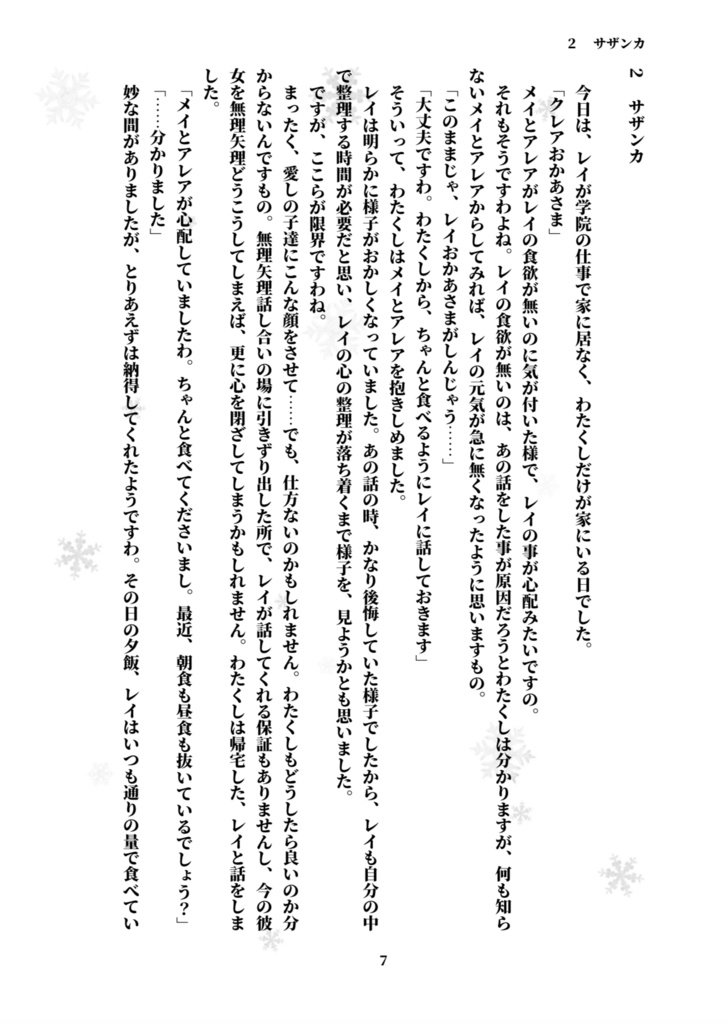 2　サザンカ
2　サザンカ
今日は、レイが学院の仕事で家に居なく、わたくしだけが家にいる日でした。
「クレアおかあさま」
メイとアレアがレイの食欲が無いのに気が付いた様で、レイの事が心配みたいですの。
それもそうですわよね。レイの食欲が無いのは、あの話をした事が原因だろうとわたくしは分かりますが、何も知ら
ないメイとアレアからしてみれば、レイの元気が急に無くなったように思いますもの。
「このままじゃ、レイおかあさまがしんじゃう……」
「大丈夫ですわ。わたくしから、ちゃんと食べるようにレイに話しておきます」
そういって、わたくしはメイとアレアを抱きしめました。
レイは明らかに様子がおかしくなっていました。あの話の時、かなり後悔していた様子でしたから、レイも自分の中
で整理する時間が必要だと思い、レイの心の整理が落ち着くまで様子を、見ようかとも思いました。
ですが、ここらが限界ですわね。
まったく、愛しの子達にこんな顔をさせて……でも、仕方ないのかもしれません。わたくしもどうしたら良いのか分
からないんですもの。無理矢理話し合いの場に引きずり出した所で、レイが話してくれる保証もありませんし、今の彼
女を無理矢理どうこうしてしまえば、更に心を閉ざしてしまうかもしれません。わたくしは帰宅した、レイと話をしま
した。
「メイとアレアが心配していましたわ。ちゃんと食べてくださいまし。最近、朝食も昼食も抜いているでしょう？」
「……分かりました」
妙な間がありましたが、とりあえずは納得してくれたようですわ。その日の夕飯、レイはいつも通りの量で食べてい
7